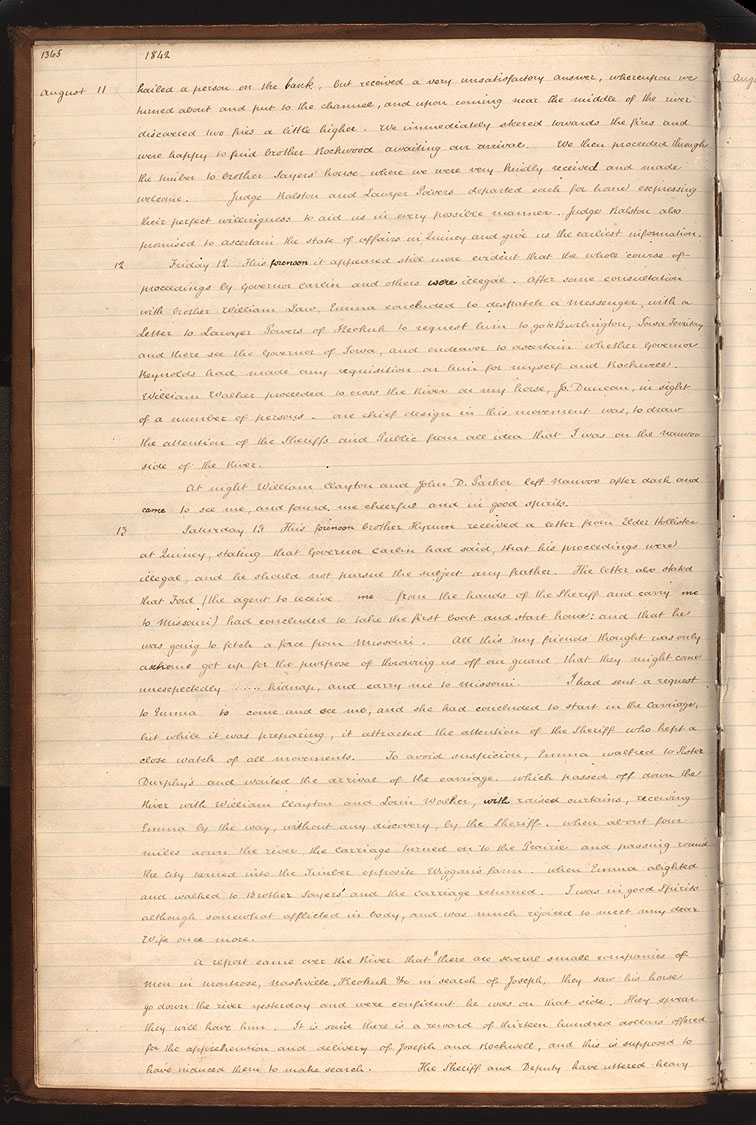 1365 1842
August 11 hailed a person on the bank, but received a very unsatisfactory answer, whereupon we
turned about and put to the channel, and upon coming near the middle of the river
discovered two fires a little higher. We immediately steered towards the fires and
were happy to find brother Rockwood awaiting our arrival. We then proceeded through
the timber to brother Sayers' house where we were very kindly received and made
welcome. Judge Ralston and Lawyer Powers departed each for home expressing
their perfect willingness to aid us in every possible manner. Judge Ralston also
promised to ascertain the state of affairs in Quincy and give us the earliest information.
12 Friday 12 This forenoon it appeared still more evident that the whole course of
proceedings by Governor Carlin and others were illegal. After some consultation
with brother William Law, Emma concluded to despatch a messenger, with a
Letter to Lawyer Powers of Keokuk to request him to go to Burlington, Iowa Territory
and there see the Governor of Iowa, and endeavor to ascertain whether Governor
Reynolds had made any requisition on him for myself and Rockwell.
William Walker proceeded to cross the River on my horse, Jo. Duncan, in sight
of a number of persons - one chief design in this movement was, to draw
the attention of the Sheriffs and Public from all idea that I was on the Nauvoo
side of the River.
At night William Clayton and John D. Parker left Nauvoo after dark and
came to see me, and found me cheerful and in good spirits.
13 Saturday 13 This forenoon brother Hyrum received a letter from Elder Hollister
at Quincy, stating that Governor Carlin had said, that his proceedings were
illegal, and he should not pursue the subject any further. The letter also stated
that Ford (the agent to receive me from the hands of the Sheriff and carry me
to Missouri) had concluded to take the first boat and start home: and that he
was going to fetch a force from Missouri. All this my friends thought was only
a scheme got up for the purpose of throwing us off our guard, that they might come
unexpectedly ..... kidnap, and carry me to Missouri. I had sent a request
to Emma to come and see me, and she had concluded to start in the Carriage,
but while it was preparing, it attracted the attention of the Sheriff who kept a
close watch of all movements. To avoid suspicion, Emma walked to Sister
Durphy's and waited the arrival of the carriage. which passed off down the
River with William Clayton and Lorin Walker, with raised curtains, receiving
Emma by the way, without any discovery, by the Sheriff. when about four
miles down the river the carriage turned on to the Prairie and passing round
the city turned into the Timber opposite Wiggan's farm. when Emma alighted
and walked to Brother Sayers' and the carriage returned. I was in good Spirits
although somewhat afflicted in body, and was much rejoiced to meet my dear
Wife once more.
A report came over the River that "there are several small companies of
men in Montrose, Nashville, Keokuk &c in search of Joseph, they saw his horse
go down the river yesterday and were confident he was on that side. They swear
they will have him. It is said there is a reward of thirteen hundred dollars offered
for the apprehension and delivery of Joseph and Rockwell, and this is supposed to
have induced them to make search. The Sheriff and Deputy have uttered heavy